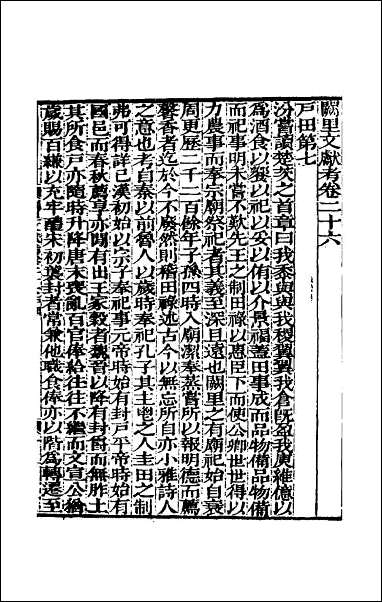 闕里文獻考卷二十六
戶田第七
汾嘗讀楚茨之首章曰我黍與與我稷翼翼我倉旣盈我庾維億以
爲酒食以饗以祀以妥以侑以介景福蓋田事成而品物備品物備
而祀事明未嘗不歎先王之制田祿以惠臣下而使公卿世世得以
力農事而奉宗廟祭祀者其義至深且遠也闕里之有廟祀始自哀
周更歷二千二百餘年子孫四時入廟潔奉蒸嘗所以報明德而薦
馨香者迄於今不廢然則稽田祿述古今以無忘所自亦小雅詩人
之意也考自秦以前魯人以歲時奉祀孔子其主鬯之人圭田之制
弗可得詳已漢初始以宗子奉祀事元帝時始有封戶平帝時始有
國邑而春秋薦享亦閒有出王家穀者魏晉以降有封爵而無胙土
其所食戶亦隨時升降唐末喪亂百官俸給往往不繼而文宣公猶
歲賜百縑以充牢醴宋初襲封者常兼他職食俸亦以階爲轉遷至